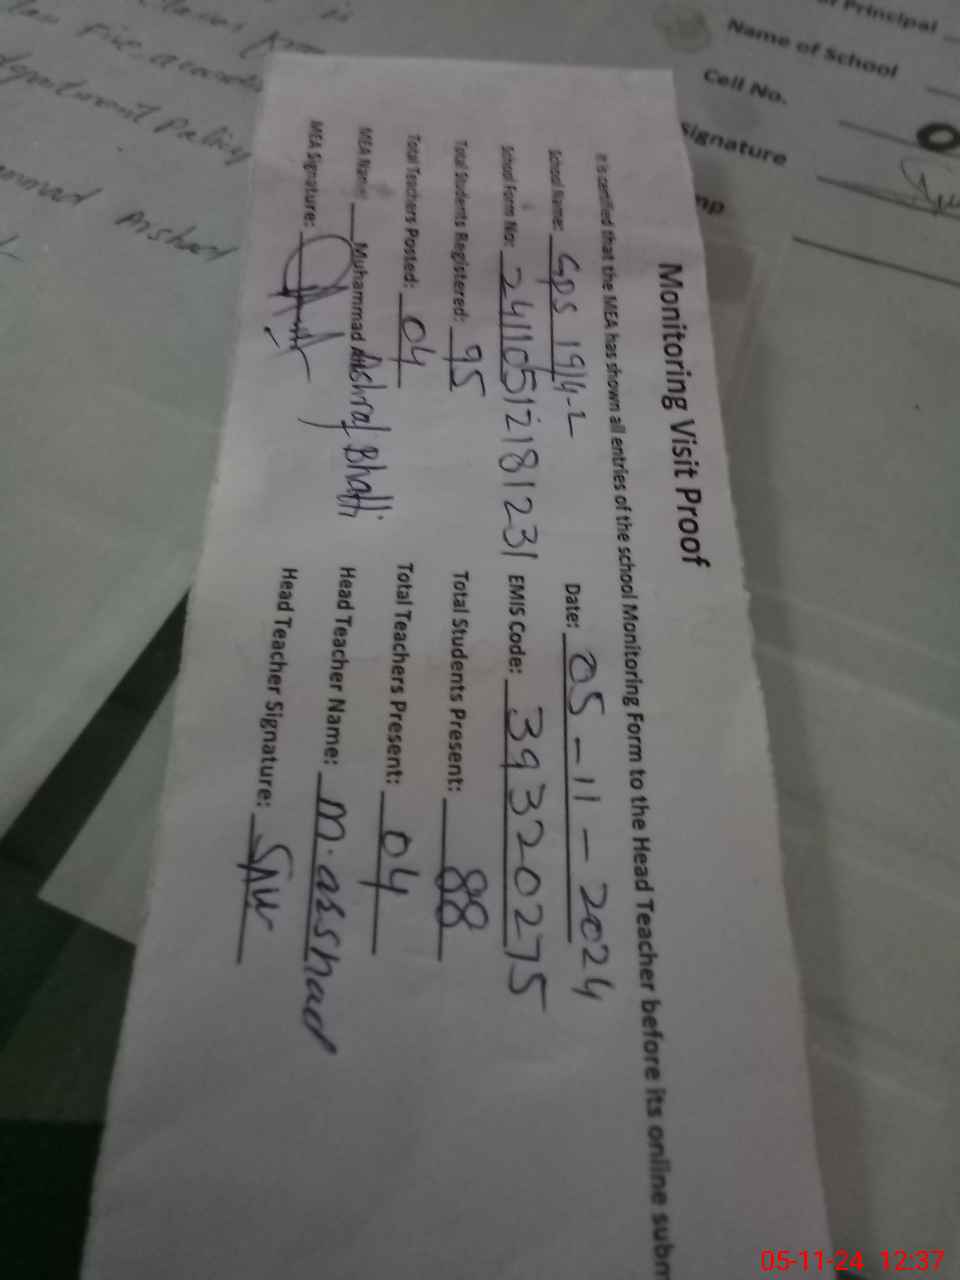 Monitoring Visit Proof
It is certified that the MEA has shown all entries of the school Monitoring Form to the Head Teacher before its online subm
School Name: GPS 1914-L Date: 05-11-2024
School Form No: 24110512181231 EMIS Code: 39320275
Total Students Registered: 95 Total Students Present: 88
Total Teachers Posted: 04 Total Teachers Present: 04
MEA Name: Muhammad Ashraf Bhatti Head Teacher Name: M. arshad
MEA Signature: Head Teacher Signature:
Principal
Name of School
Cell No.
Signature
mp
department Policy
mmad Arshad
05-11-24 12:37